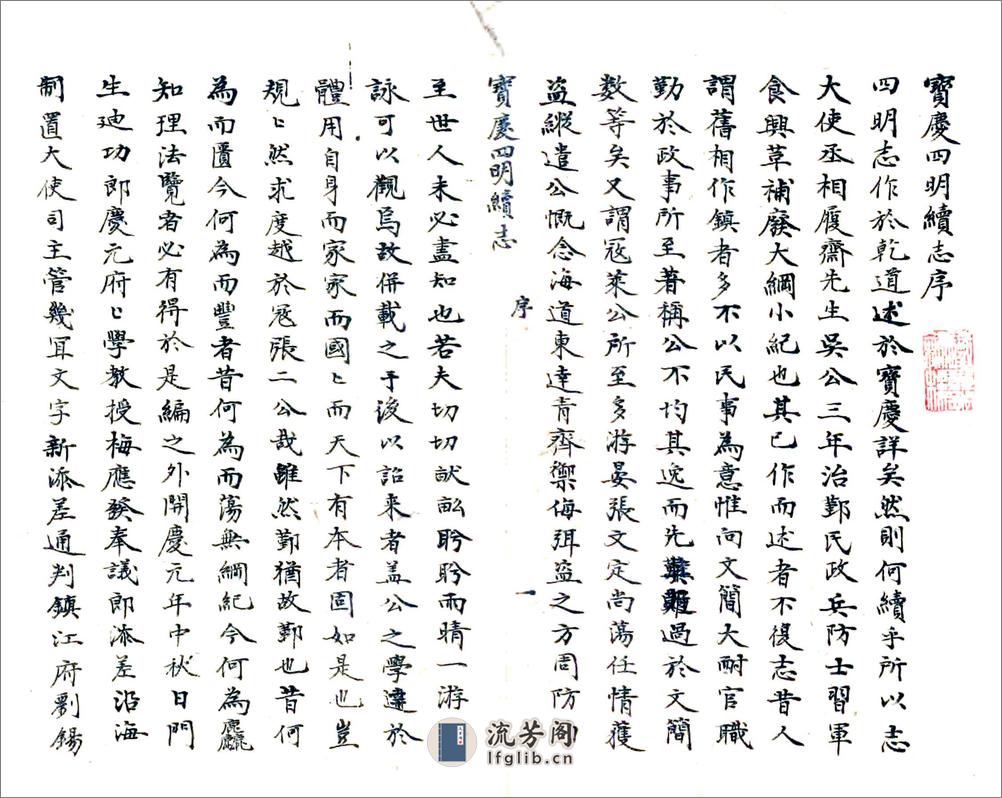 寳慶四明續志序
四明志作於乾道述於寳慶詳矣然則何續乎所以志
大使丞相履齋先生吳公三年治鄞民政兵防士習軍
食興草補廢大綱小紀也其已作而述者不復志昔人
謂舊相作鎮者多不以民事為意惟向文簡大耐官職
勤於政事所至著稱公不均其逸而先其難過於文簡
数等矣又謂冦萊公所至多游晏張文定尚蕩任情獲
盗縦遣公慨念海道東逹青齊禦侮弭盗之方周防
寳慶四明續志
序
一
至世人未必盡知也若夫切切畎畝盻盻雨晴一游一
詠可以觀焉故併載之于後以詔来者盖公之學逹於
體用自身而家家而國〻而天下有本者固如是也豈
規〻然求度越於冦張二公哉雖然鄞猶故鄞也昔何
為而匱今何為而豐昔何為而蕩無綱紀今何為麤
知理法覽者必有得於是編之外開慶元年中秋日門
生廸功郎慶元府〻學教授梅應發奉議郎添差沿海
制置大使司主管幾冝文字新添差通判鎮江府劉錫
流芳阁
lfglib.cn